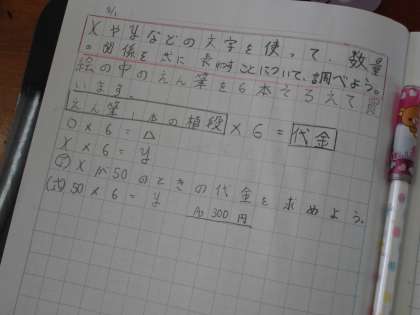 xやyなどの文字を使って、数量
の関係を式に表すことについて調べよう。
絵の中のえん筆を6本そろえて
います。
えん筆1本の値段 × 6 = 代金
○ × 6 = △
x × 6 = y
① xが50のときの代金を求めよう。
(式) 50 × 6 = y
A. 300円